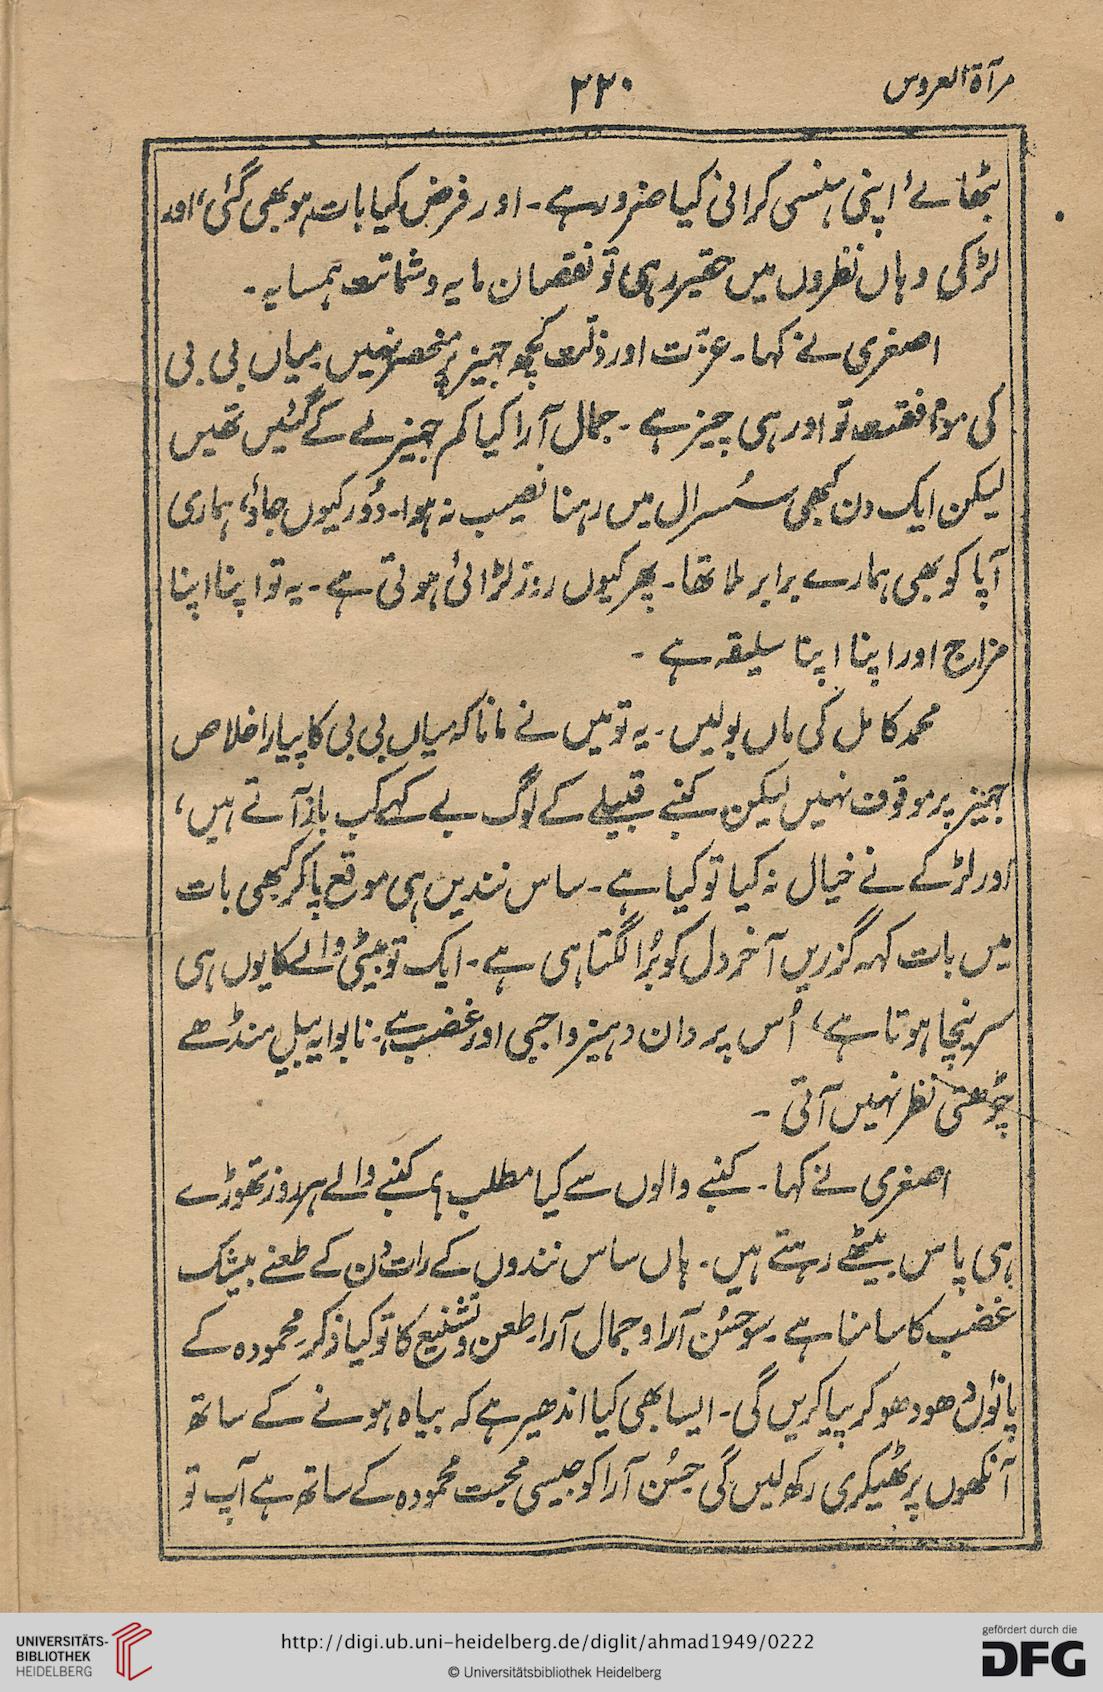 مرآۃ العروس
۲۲۰
بٹھائے اپنی ہنسی کرانی کیا ضرور ہے۔ اور فرض کیا بات ہو بھی گئی، اور
لڑکی وہاں نظروں میں حقیر رہی تو نقصان مایہ و شماتت ہمسایہ۔
اصغری نے کہا۔ عزّت اور ذلّت کچھ جہیز پر منحصر نہیں۔ میاں بی بی
کی موافقت تو اور ہی چیز ہے۔ جمال آرا کیا کم جہیز لے کے گئیں تھیں
لیکن ایک دن کبھی سُسرال میں رہنا نصیب نہ ہوا۔ دُور کیوں جاؤ، ہماری
آپا کو بھی ہمارے برابر ملا تھا۔ پھر کیوں روز لڑائی ہوتی ہے۔ یہ تو اپنا اپنا
مزاج اور اپنا اپنا سلیقہ ہے۔
محمد کامل کی ماں بولیں۔ یہ تو میں نے مانا کہ میاں بی بی کا پیار اخلاص
جہیز پر موقوف نہیں لیکن کنبے قبیلے کے لوگ بے کہے کب باز آتے ہیں،
اور لڑکے نے خیال نہ کیا تو کیا ہے۔ ساس نندیں ہی موقع پا کر کبھی بات
میں بات کہہ گزریں آخر دل کو بُرا لگتا ہی ہے۔ ایک تو بیٹی والے کا یوں ہی
سر نیچا ہوتا ہے، اُس پر دان دہیز واجبی اور غضب ہے۔ نا بوا یہ بیل منڈھے
چڑھتی نظر نہیں آتی۔
اصغری نے کہا۔ کنبے والوں سے کیا مطلب؟ کنبے والے ہر روز تھوڑے
ہی پاس بیٹھے رہتے ہیں۔ ہاں ساس نندوں کے رات دن کے طعنے بیشک
غضب کا سامنا ہے۔ سو حسُن آرا و جمال آرا۔ طعن و تشنیع کا تو کیا ذکر۔ محمودہ کے
پانؤں دھو دھو کر پیا کریں گی۔ ایسا بھی کیا اندھیر ہے کہ بیاہ ہونے کے ساتھ
آنکھوں پر ٹھیکری رکھ لیں گی حسُن آرا کو جیسی محبت محمودہ کے ساتھ ہے آپ تو
UNIVERSITÄTS-
BIBLIOTHEK
HEIDELBERG
http://digi.ub.uni-heidelberg.de/diglit/ahmad1949/0222
© Universitätsbibliothek Heidelberg
gefördert durch die
DFG